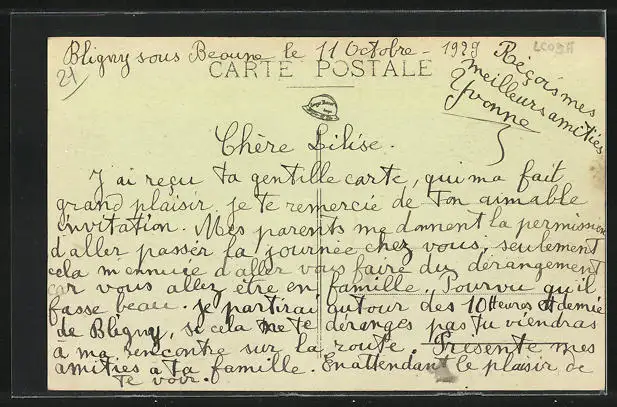 Bligny sous Beaune le 11 Octobre - 1929
CARTE POSTALE
21
Reçois mes
meilleurs amitiés
Yvonne
Chère Lilise.
J'ai reçu ta gentille carte, qui ma fait
grand plaisir je te remercie de ton aimable
invitation. Mes parents me donnent la permission
d'aller passer la journée chez vous, seulement
cela m'ennuie d'aller vous faire du dérangement
car vous allez être en famille. Pourvu qu'il
fasse beau. je partirai autour des 10 Heures et demie
de Bligny, si cela ne te déranges pas tu viendras
à ma rencontre sur la route. Présente mes
amitiés à ta famille. En attendant le plaisir de
te voir.